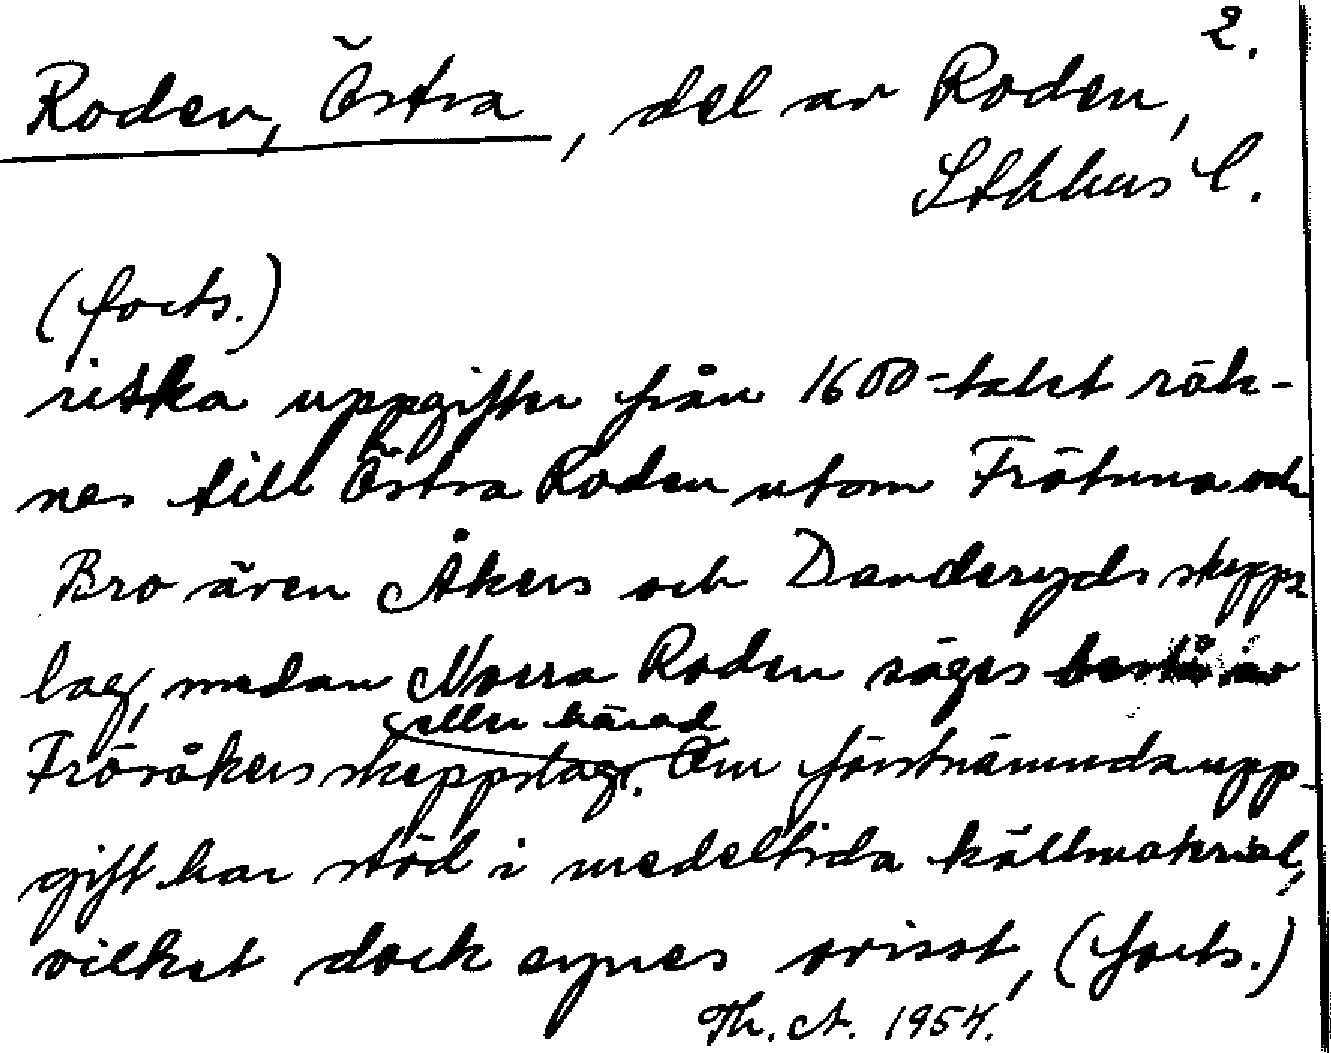 2.
Roden, Östra, del av Roden,
Sthlms l.
(forts.)
ritska uppgifter från 1600-talet räk-
nas till Östra Roden utom Frötuna och
Bro även Åkers och Danderyds skepps-
lag, medan Norra Roden säges bestå av
eller härad
Frösåkers skeppslag. Om förstnämnda upp-
gift har stöd i medeltida källmaterial,
vilket dock synes ovisst, (forts.)
Th. A. 1954.